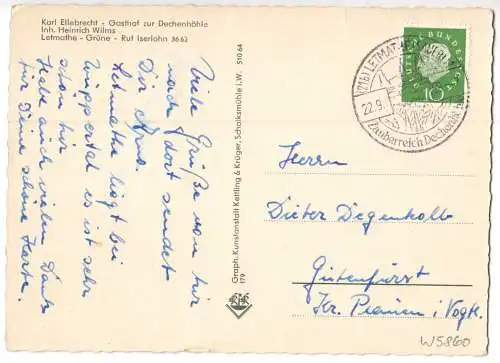 Karl Ellebrecht - Gasthof zur Dechenhöhle
Inh. Heinrich Wilms
Letmathe - Grüne - Ruf Iserlohn 3663
Viele Grüße von hir
nach dort sendet
Dir Arno.
Letmathe liegt bei
Wuppertal es ist sehr
schön hir
Habe auch vielen Dank
für Deine schöne Karte.
Graph. Kunstanstalt Kettling & Krüger, Schalksmühle i.W. 510 64
179
DEUTSCHE BUNDESPOST
10
(21b) LETMATHE
22.9.
Zauberreich Dechenhöhle
Herrn
Dieter Degenkolb
Gutenfürst
Kr. Plauen i. Vogtl.
W5860